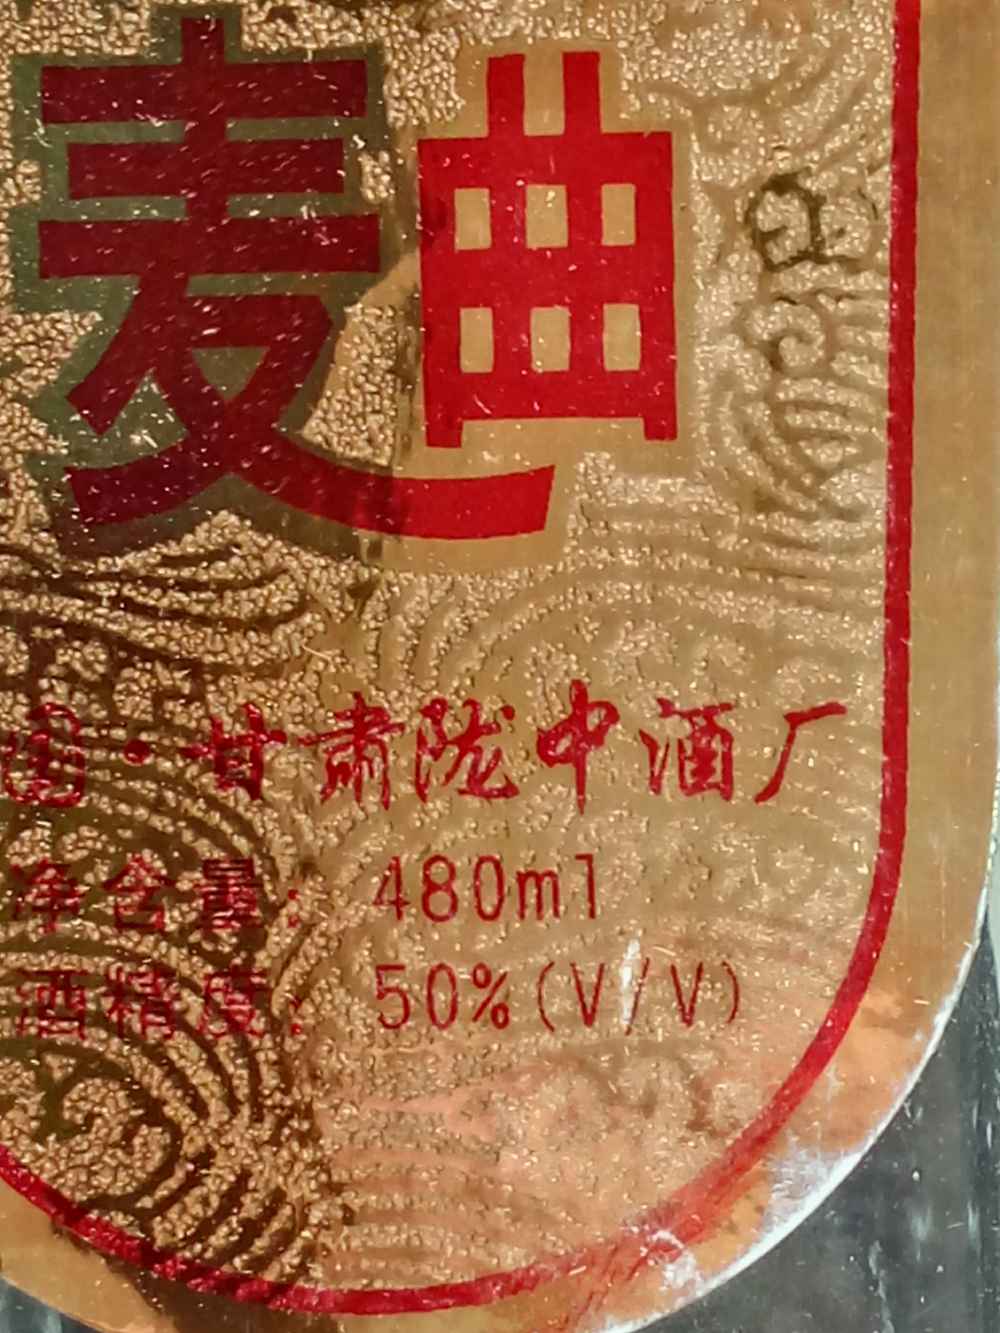 麦曲
国·甘肃陇中酒厂
净含量: 480ml
酒精度: 50%(V/V)